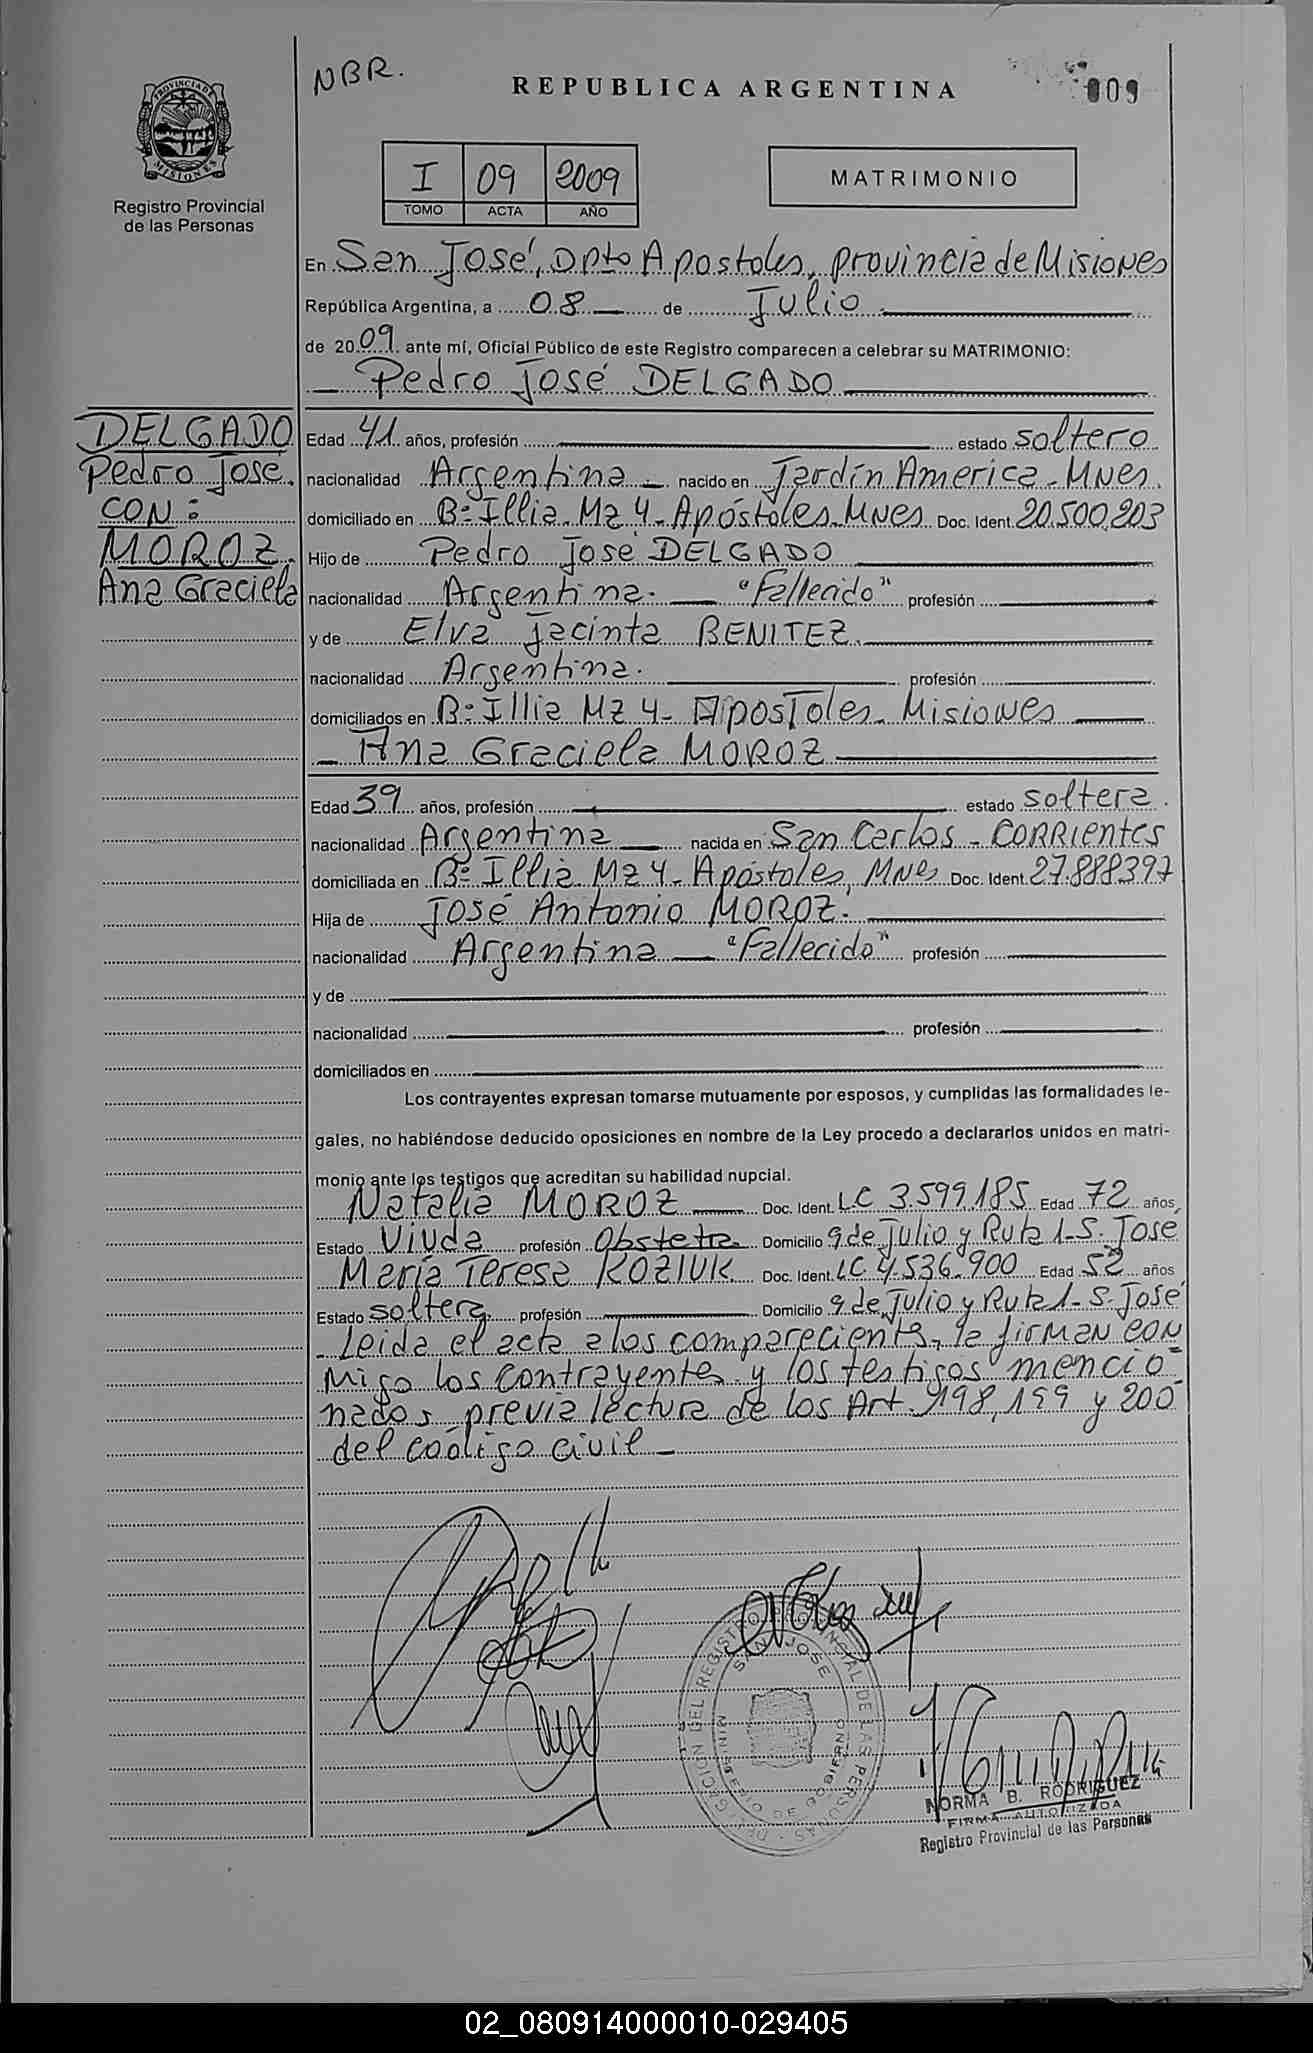 NBR.
REPUBLICA ARGENTINA
009
PROVINCIA DE
MISIONES
Registro Provincial
de las Personas
I 09 2009
TOMO ACTA AÑO
MATRIMONIO
En San José, Dpto Apostoles, provincia de Misiones
República Argentina, a 08 de Julio
de 2009 ante mí, Oficial Público de este Registro comparecen a celebrar su MATRIMONIO:
Pedro José DELGADO
DELGADO
Pedro José.
CON:
MOROZ.
Ana Graciela
Edad 41 años, profesión estado soltero
nacionalidad Argentina nacido en Jardín America - Mnes.
domiciliado en Bº Illia Mz 4 - Apóstoles - Mnes Doc. Ident. 20.500.203
Hijo de Pedro José DELGADO
nacionalidad Argentina. "Fallecido" profesión
y de Elva Jacinta BENITEZ.
nacionalidad Argentina. profesión
domiciliados en Bº Illia Mz 4 - Apostoles - Misiones
Ana Graciela MOROZ
Edad 39 años, profesión estado soltera.
nacionalidad Argentina nacida en San Carlos - CORRIENTES
domiciliada en Bº Illia Mz 4 - Apóstoles, Mnes Doc. Ident. 27.888397
Hija de José Antonio MOROZ.
nacionalidad Argentina "Fallecido" profesión
y de
nacionalidad profesión
domiciliados en
Los contrayentes expresan tomarse mutuamente por esposos, y cumplidas las formalidades le-
gales, no habiéndose deducido oposiciones en nombre de la Ley procedo a declararlos unidos en matri-
monio ante los testigos que acreditan su habilidad nupcial.
Natalia MOROZ Doc. Ident. LC 3.599.185 Edad 72 años,
Estado Viuda profesión Obstetra Domicilio 9 de Julio y Ruta 1 - S. José
María Teresa KOZIUK Doc. Ident. LC 4.536.900 Edad 52 años
Estado soltera profesión Domicilio 9 de Julio y Ruta 1 - S. José
Leida el acta a los comparecientes, la firman con
migo los contrayentes y los testigos mencio=
nados, previa lectura de los Art. 198, 199 y 200
del código civil
DELEGACION DEL REGISTRO PROVINCIAL DE LAS PERSONAS
SAN JOSE
MINISTERIO DE GOBIERNO
NORMA B. RODRIGUEZ
FIRMA AUTORIZADA
Registro Provincial de las Personas
02_080914000010-029405